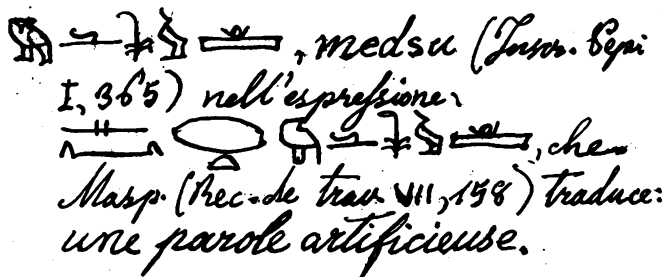 , medsu (Inscr. Pepi
I, 365) nell'espreſsione:
, che
Masp. (Rec. de trav. VII, 158) traduce:
une parole artificieuse.